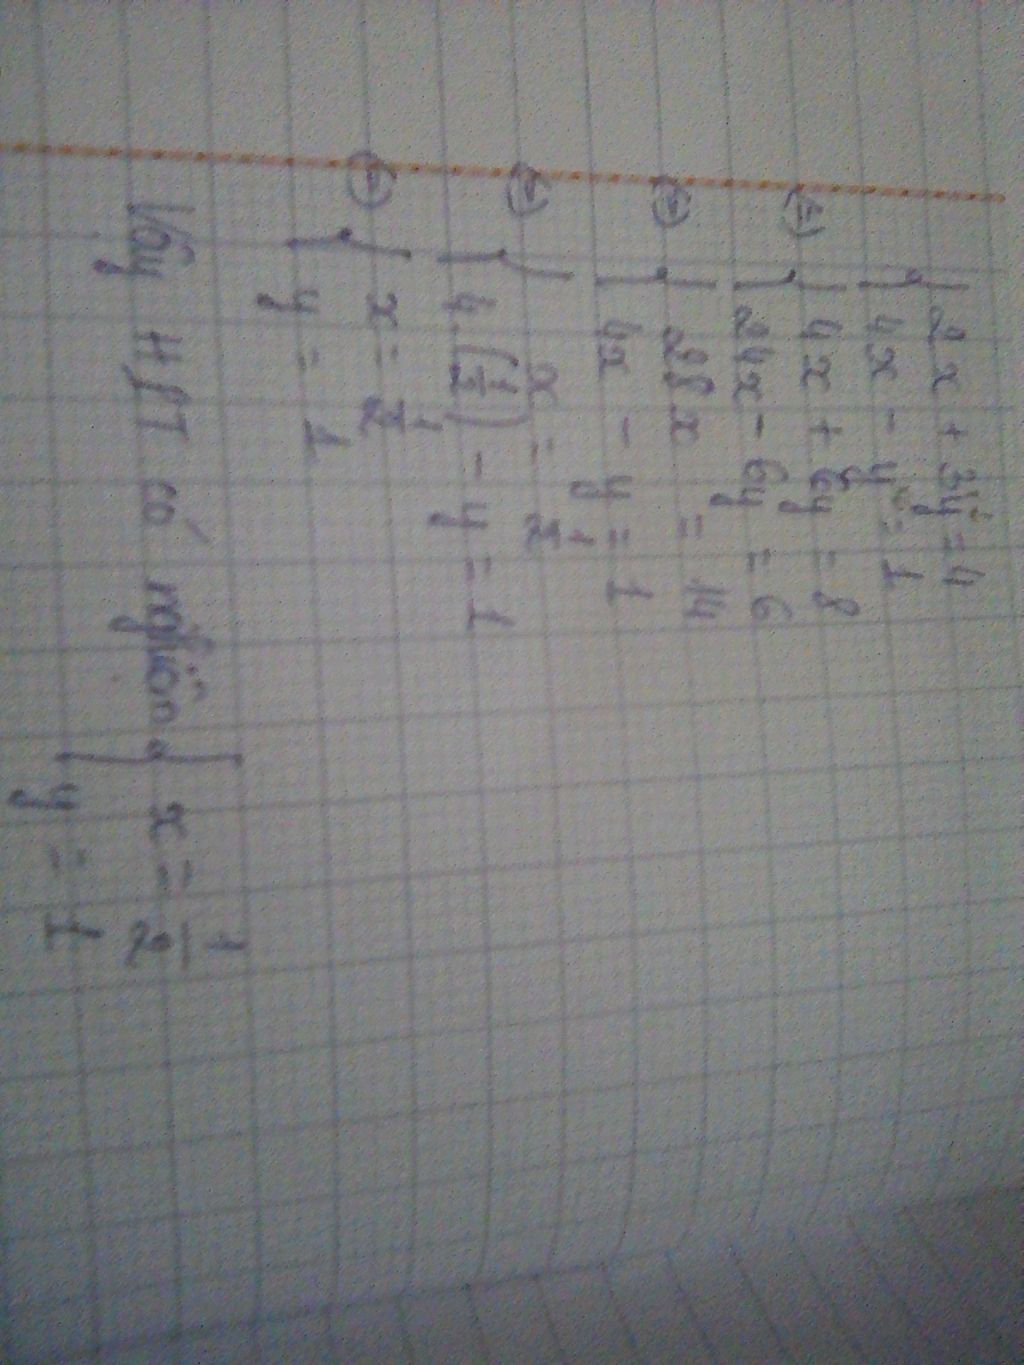 2x + 3y = 4
4x - y = 1
⇔ 4x + 6y = 8
24x - 6y = 6
⇔ 28x = 14
4x - y = 1
⇔ x = 1/2
4.(1/2) - y = 1
⇔ x = 1/2
y = 1
Vậy HPT có nghiệm x = 1/2
y = 1